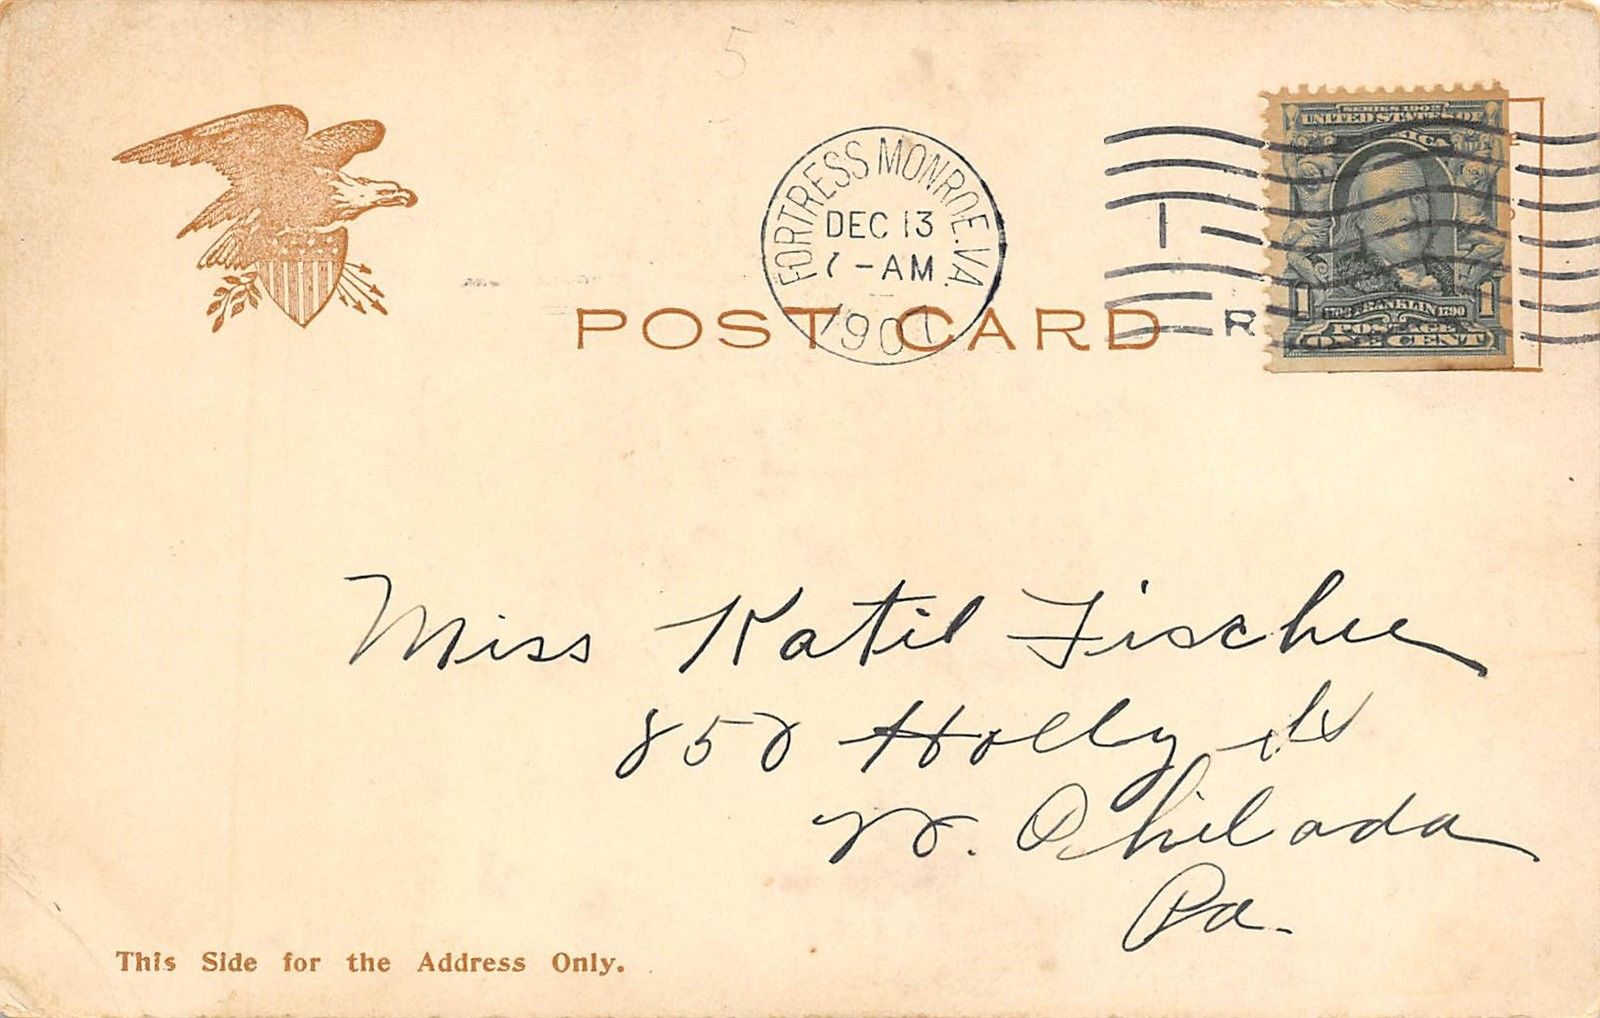 5
FORTRESS MONROE. VA.
DEC 13
7-AM
190
1
SERIES 1902
UNITED STATES OF
POST CARD
R
1 FRANKLIN 1
1706 1790
POSTAGE
ONE CENT
Miss Katie Fischer
852 Holly St
W. Philada
Pa.
This Side for the Address Only.